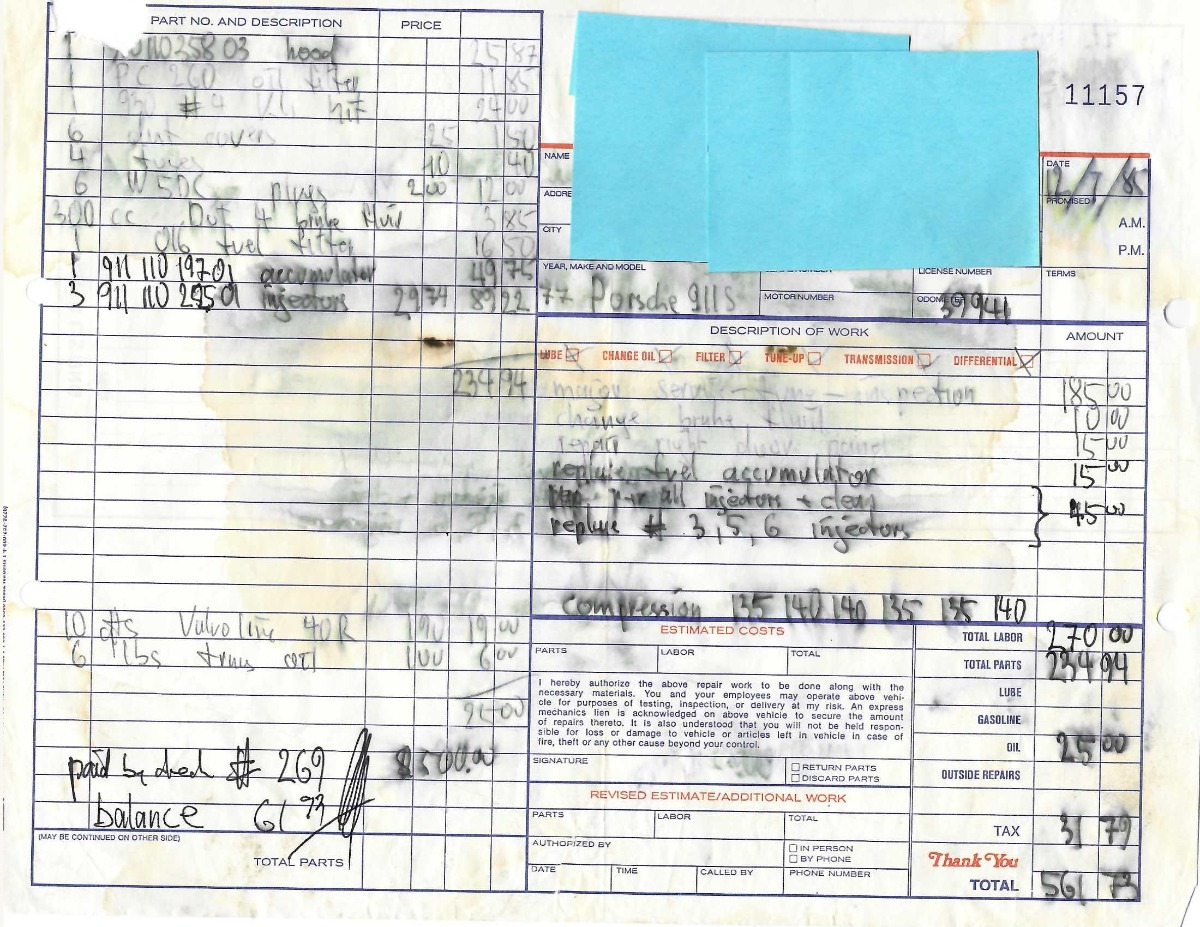 PART NO. AND DESCRIPTION PRICE
1 11035803 hood 25 87
1 PC 260 oil filter 11 85
1 930 #4 24 00
6 dust covers 25 1 50
4 fuses 10 40
6 W5DC plugs 2 00 12 00
300 cc Dot 4 brake fluid 3 85
1 016 fuel filter 16 50
1 911 110 197 01 accumulator 49 75
3 911 110 295 01 injectors 29 74 89 22
234 94
10 qts Valvoline 40R 1 90 19 00
6 lbs trans oil 1 00 6 00
25 00
paid by check # 269 $500.00
balance 61 73
(MAY BE CONTINUED ON OTHER SIDE)
TOTAL PARTS
11157
NAME
DATE 12/7/85
ADDRE
PROMISED
A.M.
P.M.
CITY
YEAR, MAKE AND MODEL
77 Porsche 911S
LICENSE NUMBER
TERMS
MOTOR NUMBER
ODOMETER 59941
DESCRIPTION OF WORK AMOUNT
LUBE CHANGE OIL FILTER TUNE-UP TRANSMISSION DIFFERENTIAL
major service - tune - inspection 185 00
change brake fluid 10 00
repair right door panel 15 00
replace fuel accumulator 15 00
all injectors + clean 45 00
replace # 3, 5, 6 injectors
compression 135 140 140 135 135 140
ESTIMATED COSTS
PARTS LABOR TOTAL
I hereby authorize the above repair work to be done along with the
necessary materials. You and your employees may operate above vehi-
cle for purposes of testing, inspection, or delivery at my risk. An express
mechanics lien is acknowledged on above vehicle to secure the amount
of repairs thereto. It is also understood that you will not be held respon-
sible for loss or damage to vehicle or articles left in vehicle in case of
fire, theft or any other cause beyond your control.
SIGNATURE
RETURN PARTS
DISCARD PARTS
REVISED ESTIMATE/ADDITIONAL WORK
PARTS LABOR TOTAL
AUTHORIZED BY
IN PERSON
BY PHONE
DATE TIME CALLED BY PHONE NUMBER
TOTAL LABOR 270 00
TOTAL PARTS 234 94
LUBE
GASOLINE
OIL 25 00
OUTSIDE REPAIRS
TAX 31 79
Thank You
TOTAL 561 73